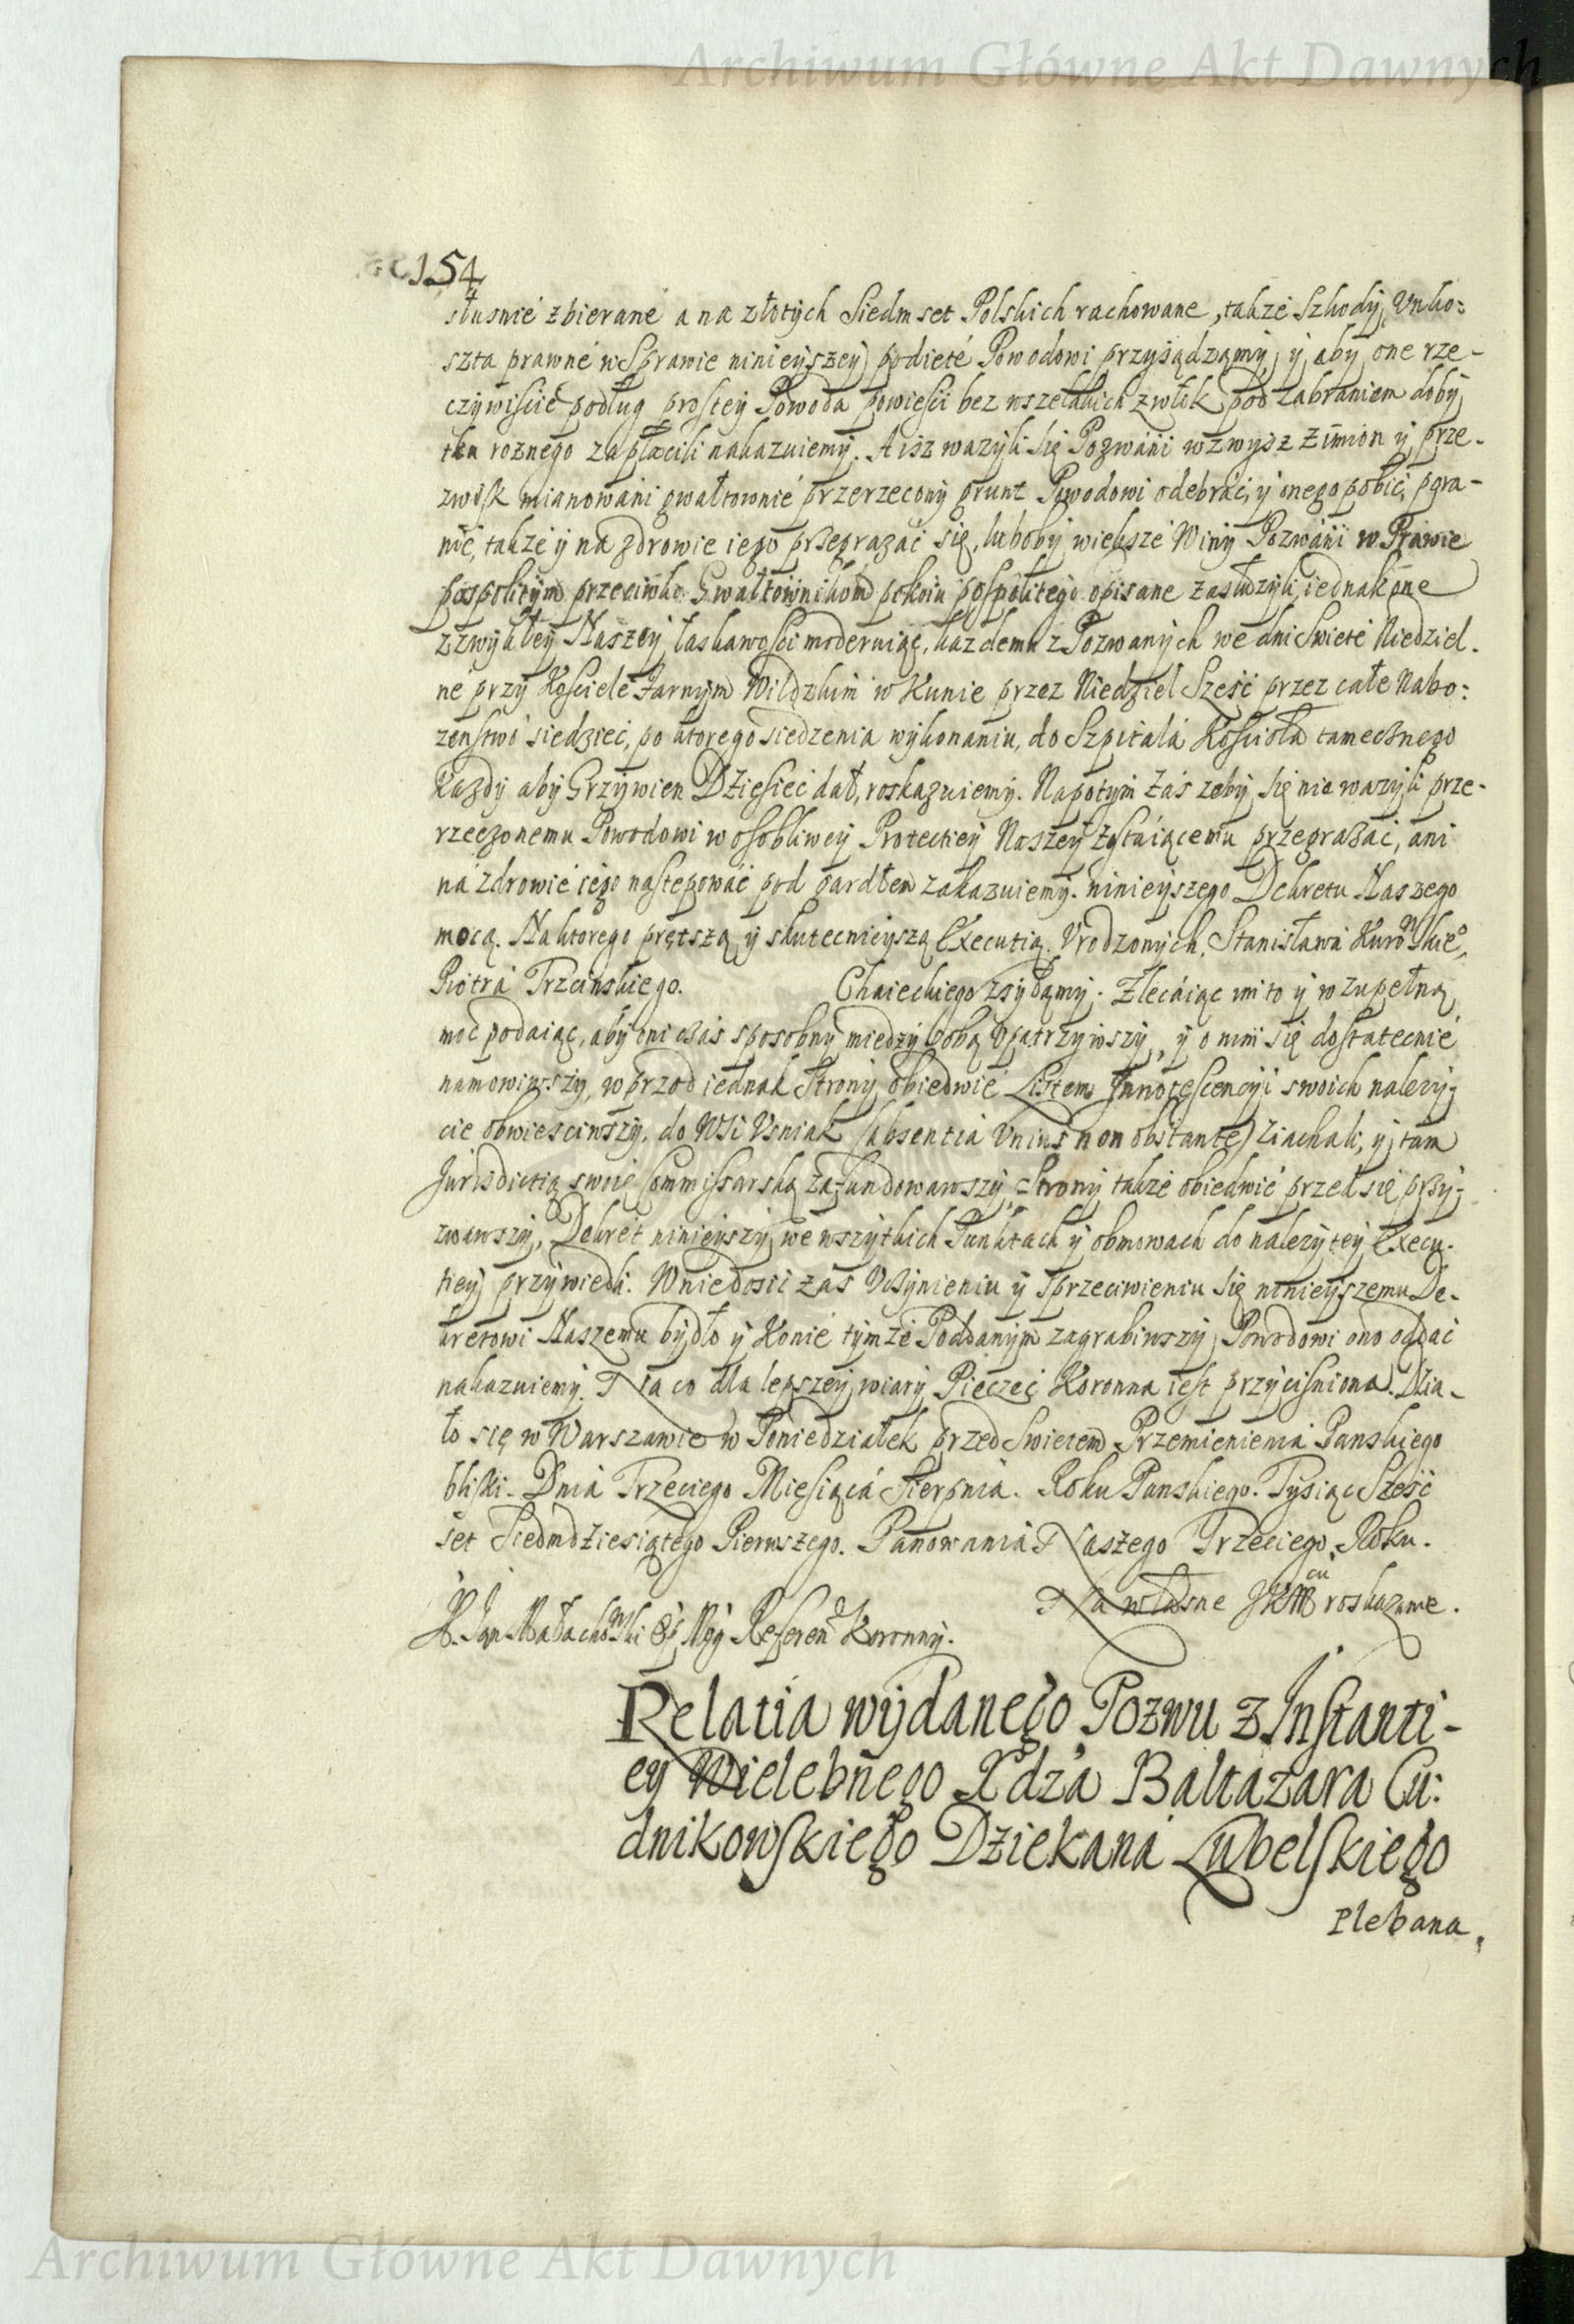 Archiwum Główne Akt Dawnych
154
słusnié zbierané a na złotych Siedm set Polskich rachowane, takzé Szkody, Vnko:
szta prawné w Sprawie ninieyszey podięté Powodowi przysądzamy, y aby one rze-
czywiscié podług prostey Powoda powiesci bez wszelakich zwłok pod zabraniem doby
tku roznego zapłacili nakazuiemy. A isz wazyli się Pozwani wzwysz z imion y prze-
zwisk mianowani gwałtownié przerzeczony grunt Powodowi odebrać, y onego pobić, pgra-
nić, takzé y na zdrowie iego przegrazać się, luboby wieksze Winy Pozwani w Prawie
pospolitym przeciwko Gwałtownikom pokoiu pospolitego opisane zasłuzyli, iednak one
z zwykłey Naszey łaskawosci moderuiąc, kazdemu z Pozwanych we dni Swięté Niedziel-
né przy Kosciele Farnym Wildzkim w Kunie przez Niedziel Szesć przez całe Nabo:
zenstwo siedzieć, po ktorego siedzenia wykonaniu, do Szpitala Koscioła tamecznego
Kazdy aby Grzywien Dziesieć dał, roskazuiemy. Napotym zas zeby się nie wazyli prze-
rzeczonemu Powodowi w osobliwey Protectiey Naszey zostaiącemu przegrazać, ani
ná zdrowié iego nastepować pod gardłem zakazuiemy. ninieyszego Dekretu Naszego
mocą. Na ktorego prętszą y skutecnieyszą Executią Vrodzonych, Stanisława Kurowskieo,
Piotrá Trzcinskiego. Chaieckiego zsyłamy. Zlecáiąc im to y w zupełną
moc podaiąc, aby oni czas sposobny miedzy sobą vpatrzywszy, y o nim się dostatecnié
namowiwszy, wprzod iednak Strony obiedwié Listem Innotescencyi swoich nalezy-
cie obwiesciwszy, do Wsi Vsniak (absentia Vnius non obstante) ziachali, y tam
Jurisdictią swoię Commissarską zafundowawszy, Strony takzé obiedwié przed się przy-
zwawszy, Dekret ninieyszy we wszytkich Punktach y obmowach do nalezytey Execu-
tiey przywiedli. W niedosić zas Vczynieniu y sprzeciwieniu się ninieyszemu De-
kretowi Naszemu bydło y Konié tymzé Poddanym zagrabiwszy, Powodowi ono oddać
nakazuiemy. Na co dla lepszey wiary Pieczęć Koronna iest przycisniona. Dzia-
ło się w Warszawie w Poniedziałek przed Swietem Przemienienia Panskiego
bliski. Dnia Trzeciego Miesiącá Sierpnia. Roku Panskiego. Tysiąc Szesć
set Siedmdziesiątego Pierwszego. Panowania Naszego Trzeciego Roku.
Na własne JKMci roskazanie.
X. Jan Małachowski Referend Koronny.
Relatia wydanego Pozwu z Instanti-
ey Wielebnego Xdza Baltazara Cu:
dnikowskiego Dziekana Lubelskiego
Plebana,
Archiwum Główne Akt Dawnych